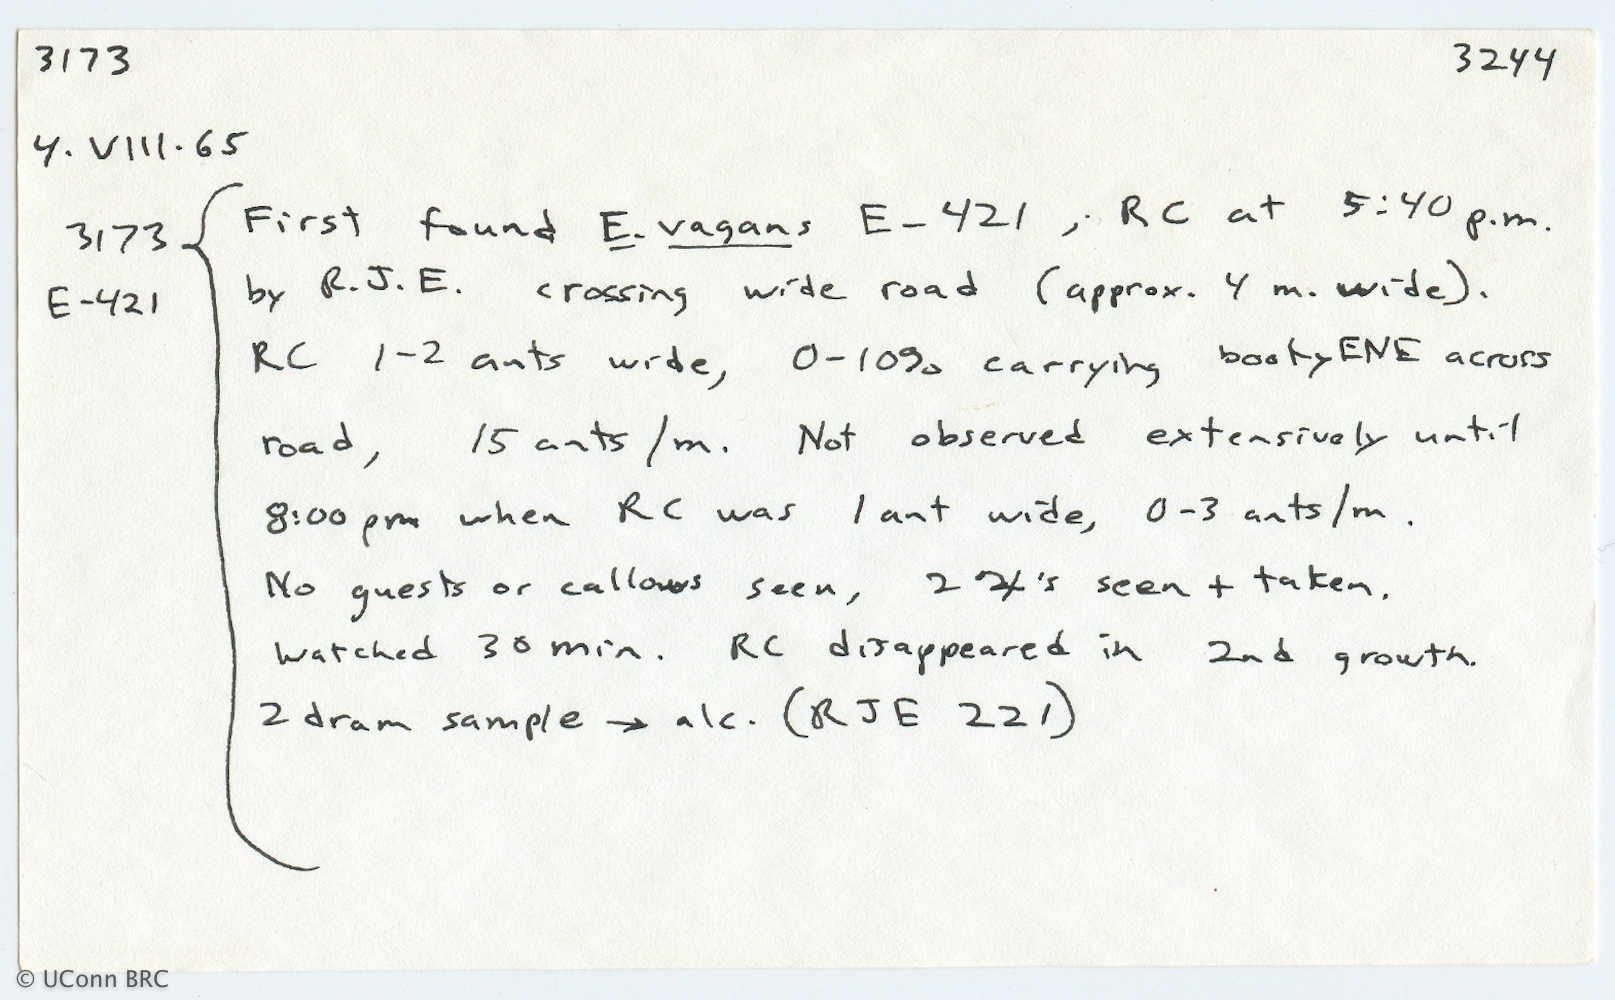 3173 3244
4. VIII. 65
3173
E-421
First found E. vagans E-421, RC at 5:40 p.m.
by R.J.E. crossing wide road (approx. 4 m. wide).
RC 1-2 ants wide, 0-10% carrying booty ENE across
road, 15 ants/m. Not observed extensively until
8:00 pm when RC was 1 ant wide, 0-3 ants/m.
No guests or callows seen, 2 ♃'s seen + taken.
Watched 30 min. RC disappeared in 2nd growth.
2 dram sample → alc. (RJE 221)
© UConn BRC